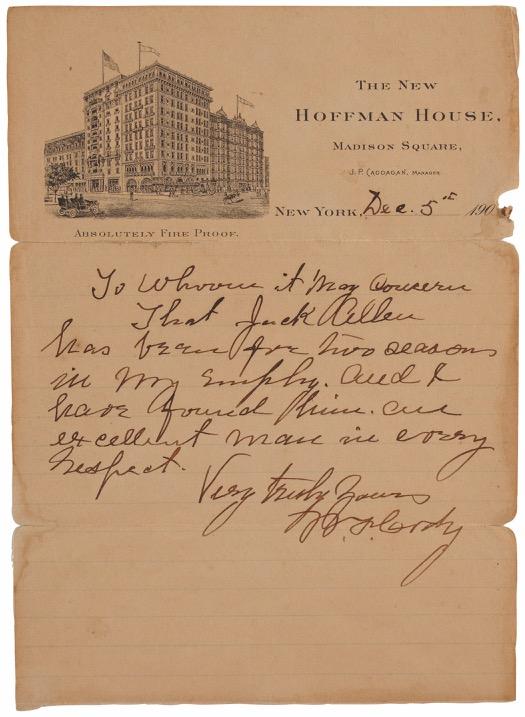 THE NEW
HOFFMAN HOUSE,
MADISON SQUARE,
J. P. CADDAGAN, MANAGER
NEW YORK, Dec. 5th 190
ABSOLUTELY FIRE PROOF.
To Whom it May Concern
That Jack Allen
has been for two seasons
in my employ. and I
have found him. an
excellent man in every
respect.
Very truly Yours
W. F. Cody